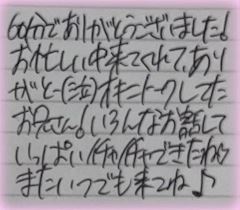 60分でありがとうございました!
お忙しい中来てくれて、あり
がと〜(泣)オキニトークしてた
お兄さん!いろんなお話して
いっぱいイチャイチャできたね
またいつでも来てね♪